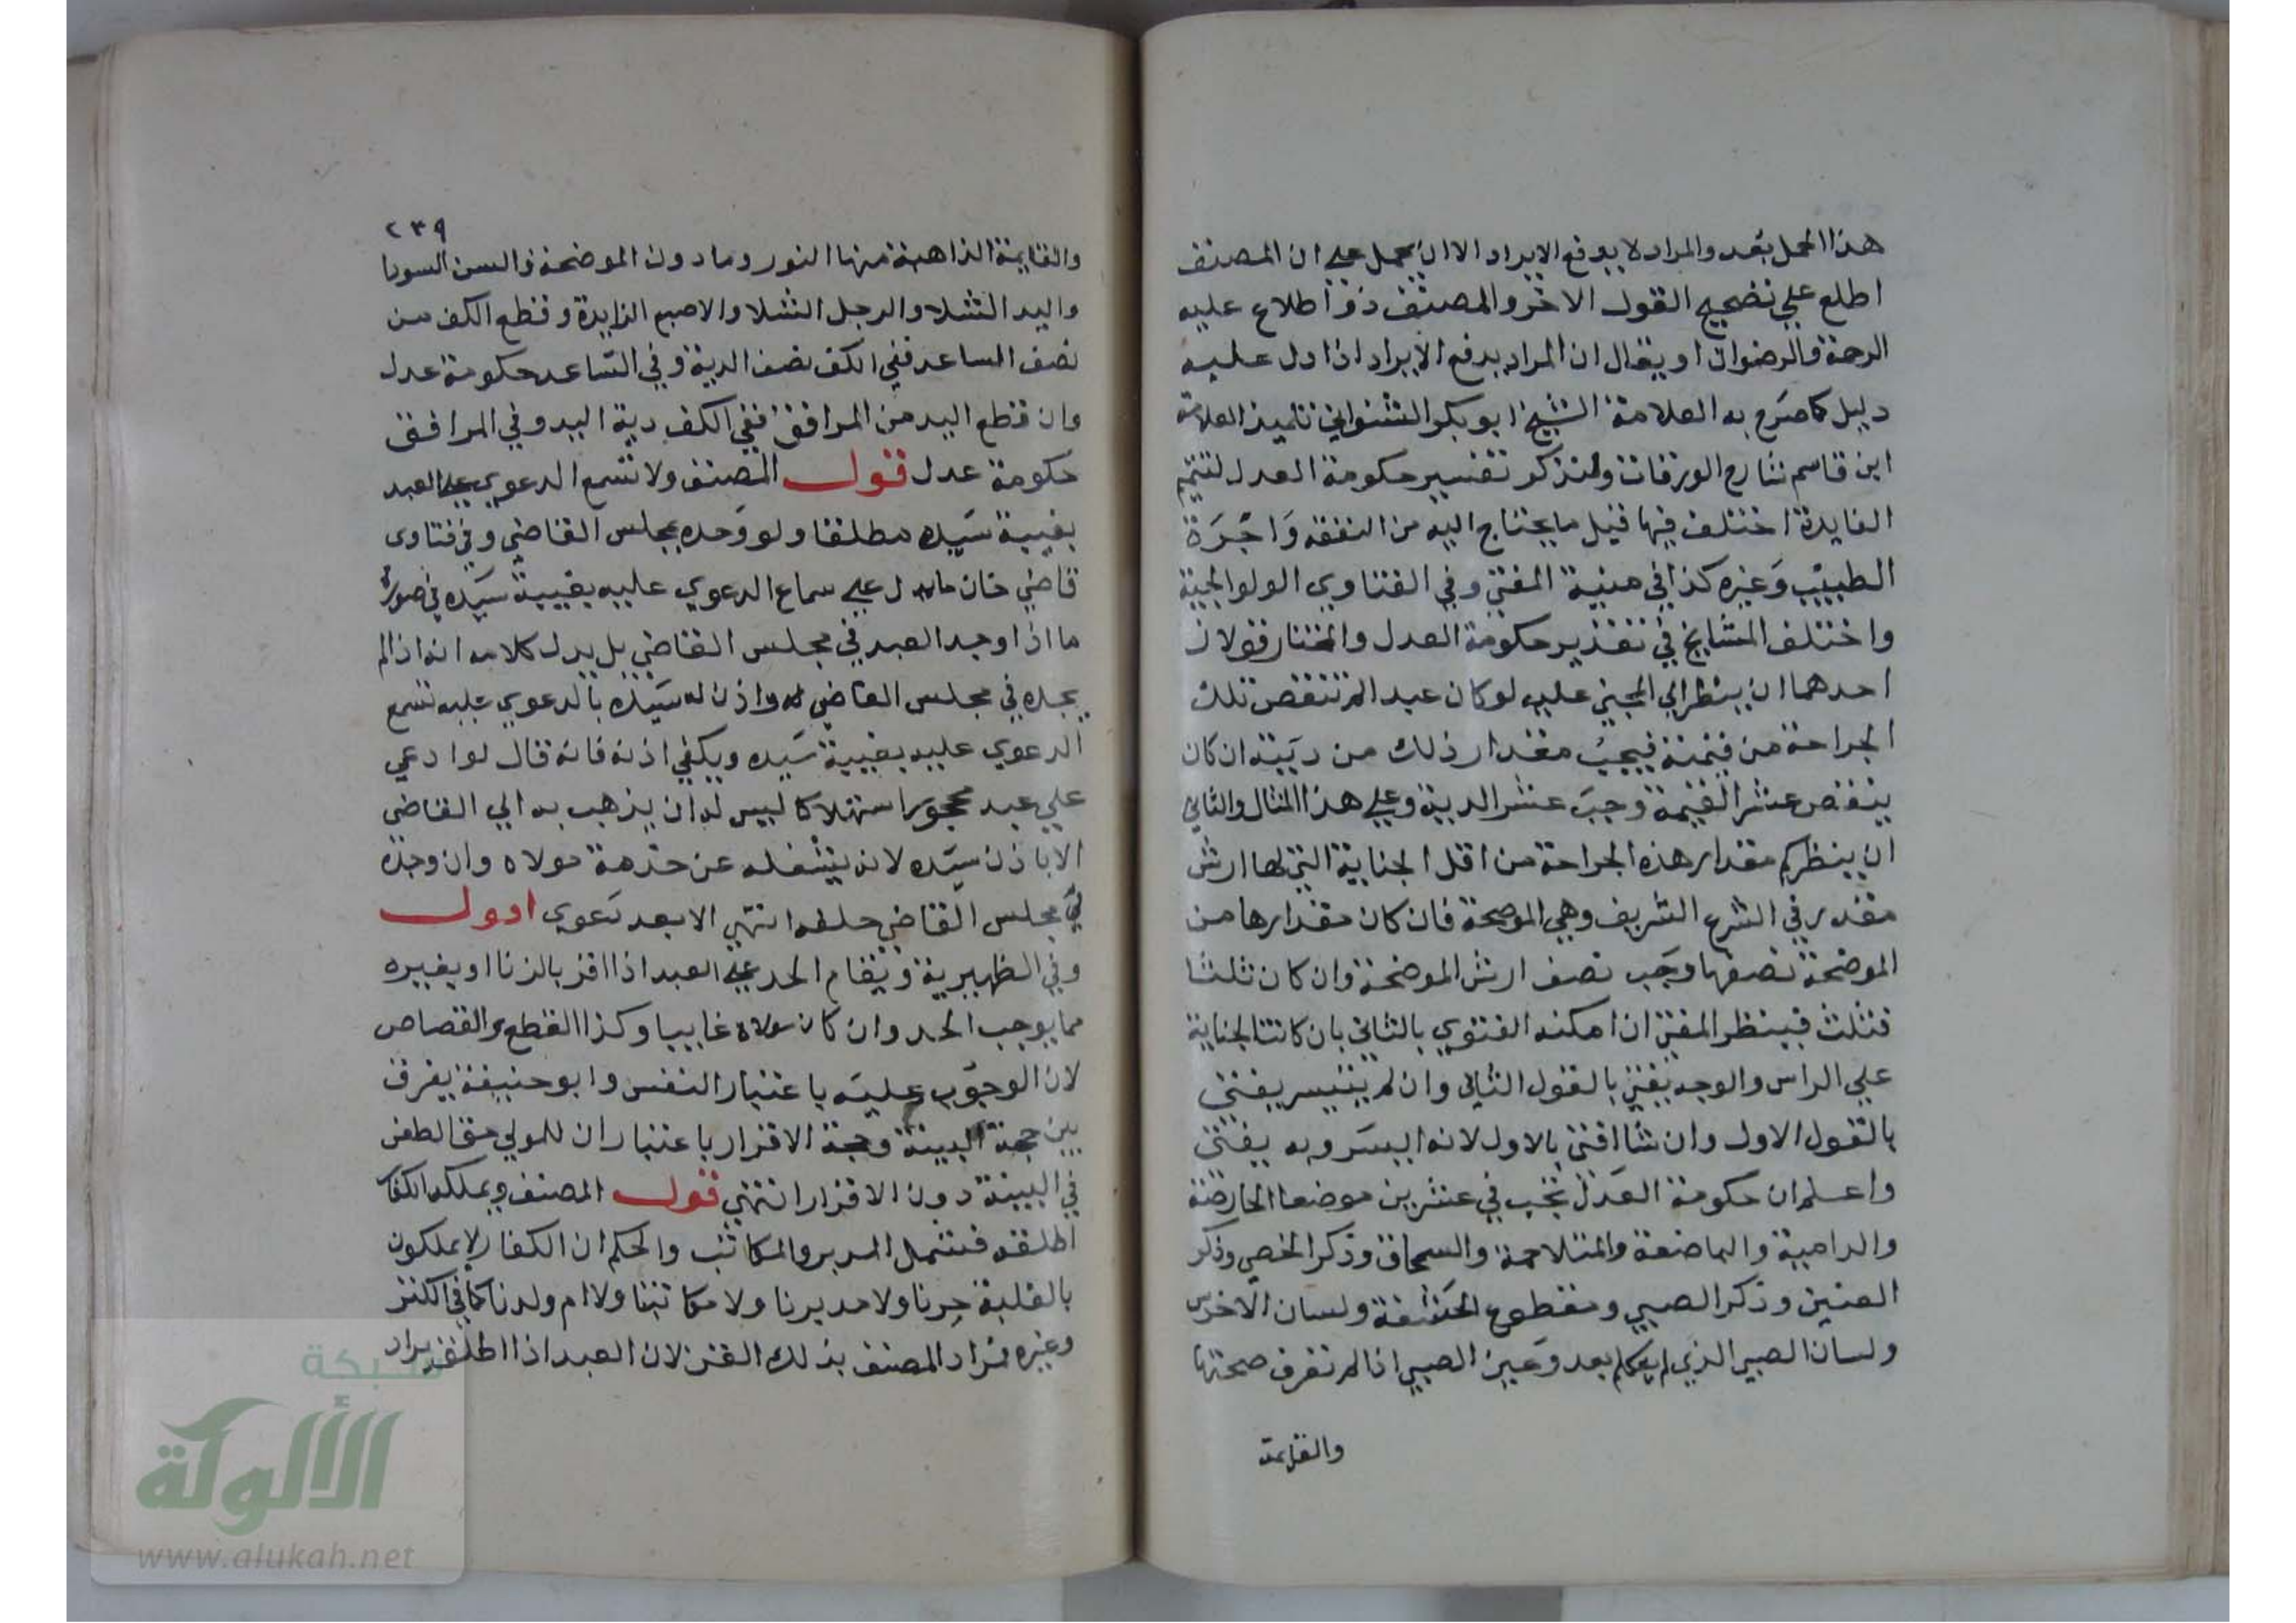 هذا المحل بعد والمراد لا يدفع الايراد الا ان يحمل على ان المصنف
اطلع على تصحيح القول الاخر والمصنف ذو اطلاع عليه
الرحمة والرضوان او يقال ان المراد يدفع الايراد اذا دل عليه
دليل كما صرح به العلامة الشيخ ابو بكر الشنواني تلميذ العلامة
ابن قاسم شارح الورقات ولنذكر تفسير حكومة العدل لتتم
الفايدة اختلف فيها قيل ما يحتاج اليه من النفقه واجرة
الطبيب وغيره كذا في منية المفتي وفي الفتاوي الولوالجية
واختلف المشايخ في تقدير حكومة العدل والمختار قولان
احدهما ان ينظر الى المجني عليه لو كان عبدا لم تنتقص تلك
الجراحة من قيمته فيجب مقدار ذلك من ديته ان كان
ينقص عشر القيمة وجب عشر الدية وعلى هذا المثال والثاني
ان ينظر كم مقدار هذه الجراحة من اقل الجناية التي لها ارش
مقدر في الشرع الشريف وهي الموضحة فان كان مقدارها من
الموضحة نصفها وجب نصف ارش الموضحة وان كان ثلثا
فثلث فينظر المفتي ان امكنه الفتوي بالثاني بان كانت الجناية
على الراس والوجه يفتي بالقول الثاني وان لم يتيسر يفتي
بالقول الاول وان شا افتى بالاول لانه اليسر وبه يفتى
واعلم ان حكومة العدل تجب في عشرين موضعا الحارصة
والدامية والباضعة والمتلاحمة والسمحاق وذكر الخصي وذكر
العنين وذكر الصبي ومقطوع الحشفة ولسان الاخرس
ولسان الصبي الذي لم يتكلم بعد وعين الصبي اذا لم تعرف صحتها
والقايمة
٢٣٩
والقايمة الذاهبة منها النور وما دون الموضحة والسن السودا
واليد الشلا والرجل الشلا والاصبع الزايدة وقطع الكف من
نصف الساعد ففي الكف نصف الدية وفي الساعد حكومة عدل
وان قطع اليد من المرافق ففي الكف دية اليد وفي المرافق
حكومة عدل قول المصنف ولا تسمع الدعوي على العبد
بغيبة سيده مطلقا ولو وحده بمجلس القاضي وفي فتاوى
قاضي خان ما يدل على سماع الدعوي عليه بغيبة سيده في صورة
ما اذا وجد العبد في مجلس القاضي بل يدل كلامه انه اذا لم
يجده في مجلس القاضي واذن له سيده بالدعوي عليه تسمع
الدعوي عليه بغيبة سيده ويكفي اذنه فانه قال لو ادعى
على عبد محجور استهلاكا ليس له ان يذهب به الى القاضي
الا باذن سيده لانه يشغله عن خدمة مولاه وان وجده
في مجلس القاضي حلفه انتهى الا بعد دعوي اقول
وفي الظهيرية ويقام الحد على العبد اذا اقر بالزنا او بغيره
مما يوجب الحد وان كان مولاه غايبا وكذا القطع والقصاص
لان الوجوب عليه باعتبار النفس وابو حنيفة يفرق
بين حجة البينة وحجة الاقرار باعتبار ان للمولى حق الطعن
في البينة دون الاقرار انتهى قول المصنف ويملكه الكفار
اطلقه فشمل المدبر والمكاتب والحكم ان الكفار لا يملكون
بالغلبة حرنا ولا مدبرنا ولا مكاتبنا ولا ام ولدنا كما في الكنز
وغيره فمراد المصنف بذلك القن لان العبد اذا اطلق يراد
شبكة
الألوكة
www.alukah.net